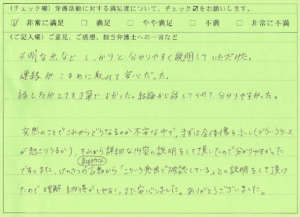 (チェック欄) 弁護活動に対する満足度について、チェック☑をお願いします。
☑ 非常に満足 □ 満足 □ やや満足 □ 不満 □ 非常に不満
(ご記入欄) ご意見、ご感想、担当弁護士への一言など
不明な点など しっかりと 分かりやすく説明して いただけた。
連絡が こまめに取れて 安心だった。
話し方がとても丁寧で よかった。結論から話してくれて 分かりやすかった。
突然のことでこれからどうなるのか不安な中で、まずは全体像を
が起こりうるか)、それから詳細な内容の説明をして頂いたので分かりやすかった
です。また、 の言動から「こういう発言で確認している」との説明をして頂け
たので理解、納得がしやすく、また安心しました。ありがとうございました。